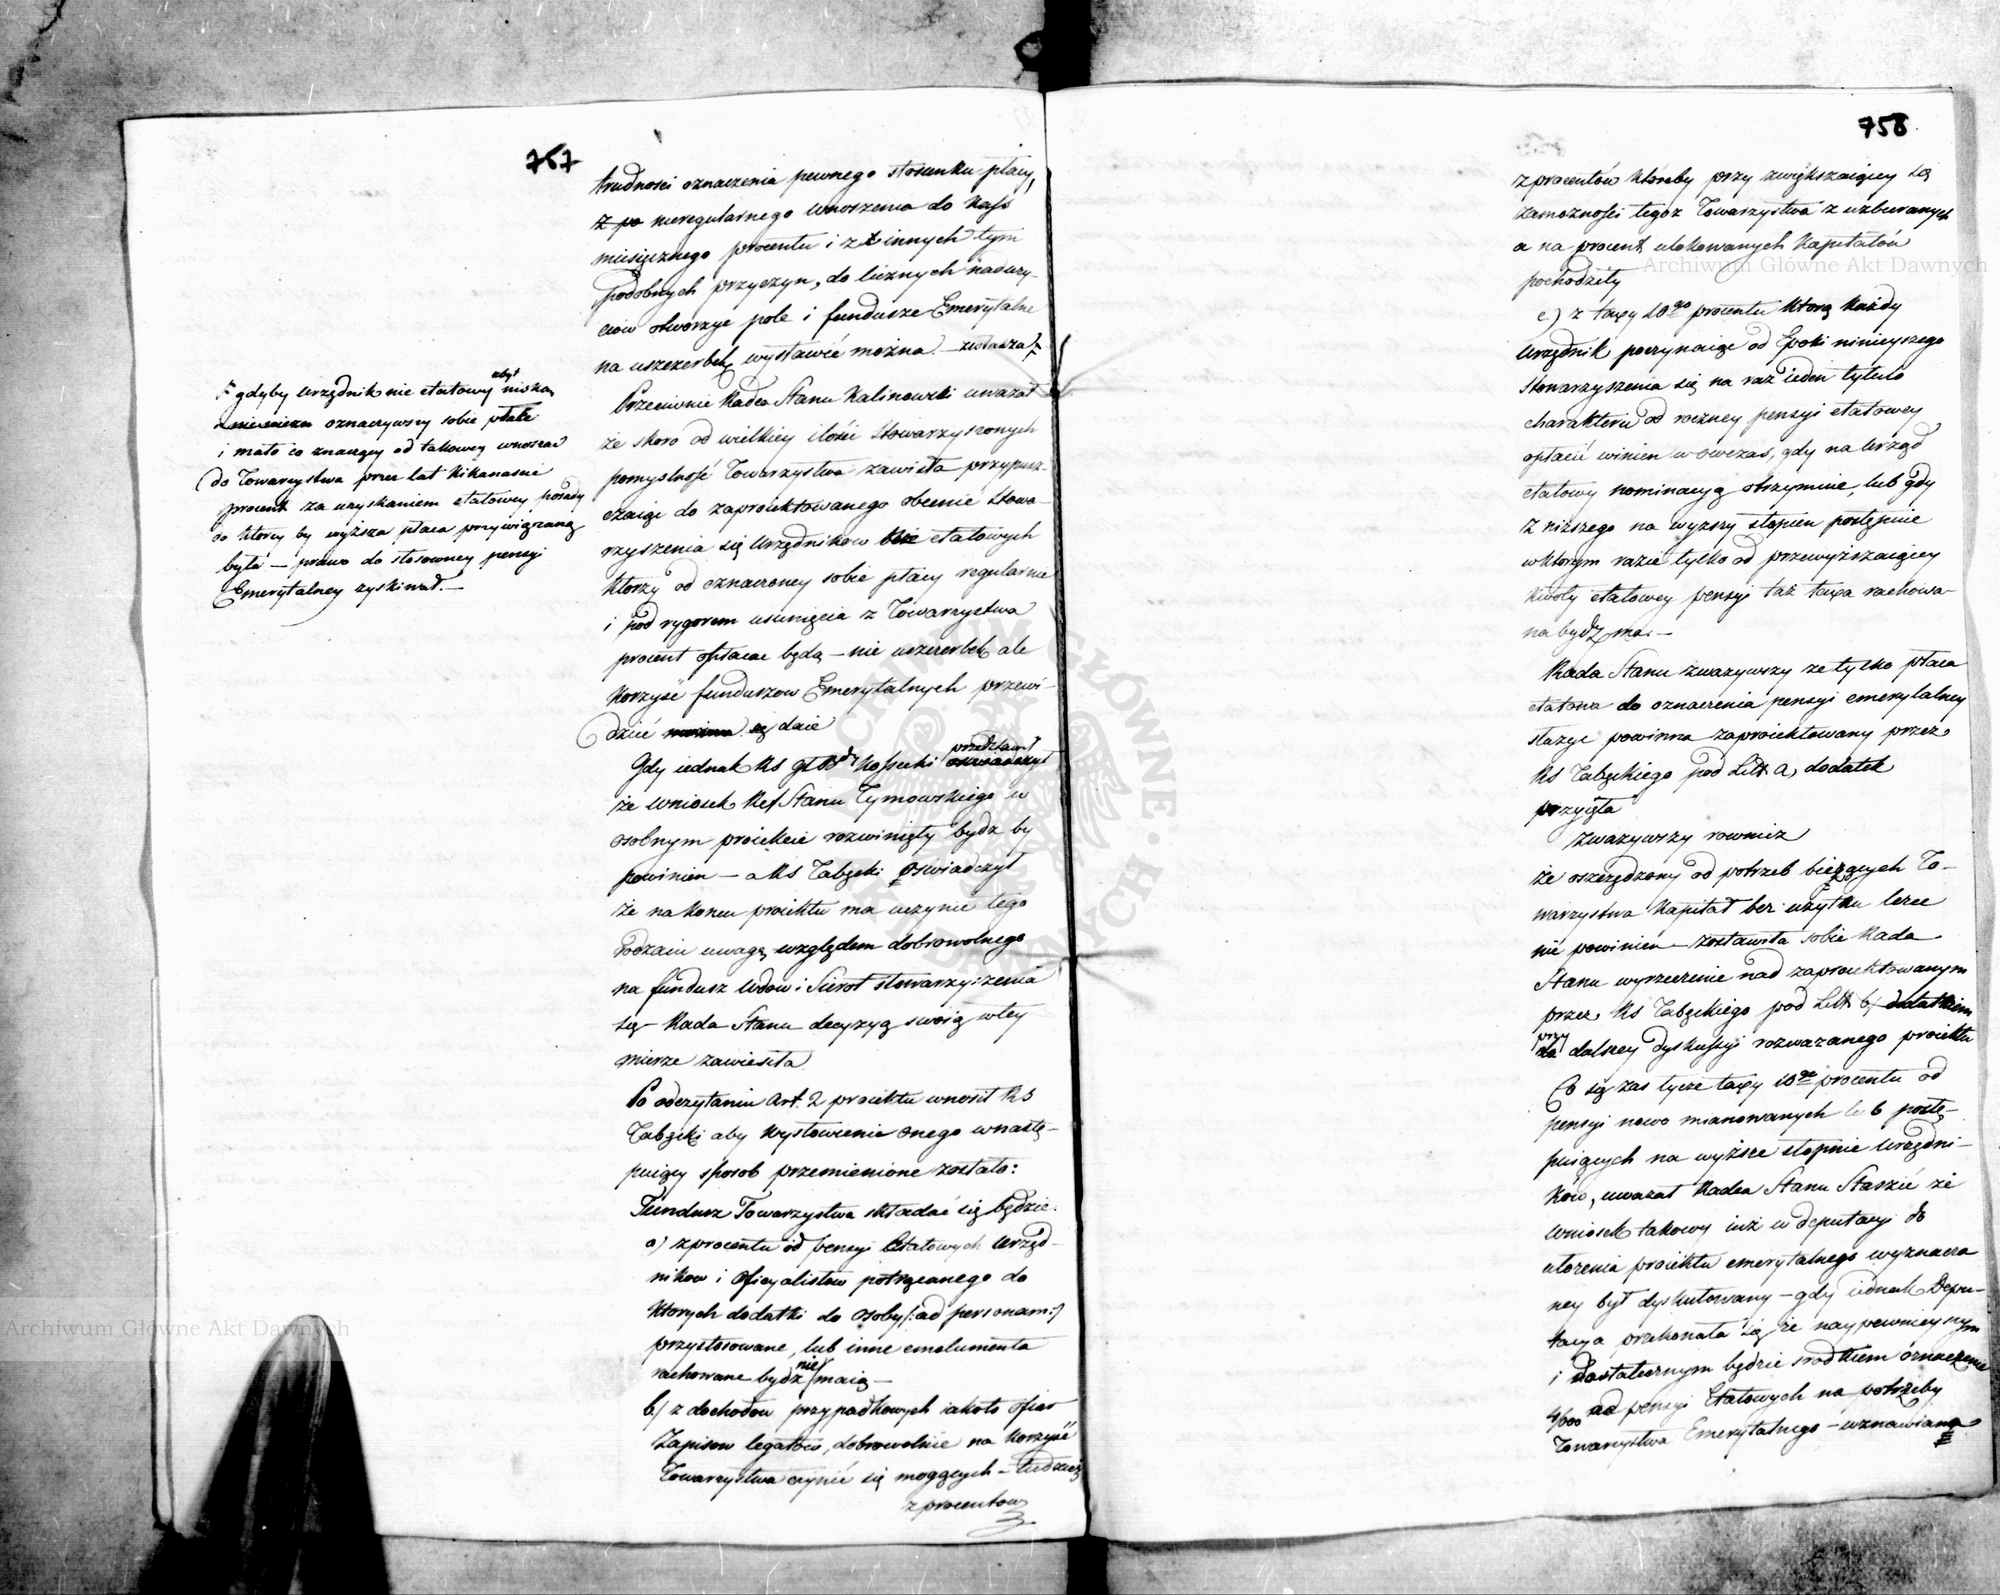 757
trudności oznaczenia pewnego stosunku płacy,
z po nieregularnego wnoszenia do Kass
miesięcznego procentu i z innych tym
podobnych przyczyn, do licznych naduży-
ciów otworzyć pole i fundusze Emerytalne
na uszczerbek wystawić można. — zwłaszcza
F gdyby Urzędnik nie etatowy zbyt niską
oznaczywszy sobie płacę
i mało co znaczący od takowey wnosząc
do Towarzystwa przez lat kilkanaście
procent za uzyskaniem etatowey posady
do ktorey by wyższa płaca przywiązaną
była — prawo do stosowney pensyi
Emerytalney zyskiwał. —
Przeciwnie Radca Stanu Kalinowski uważał
że skoro od wielkiey ilości Stowarzyszonych
pomyślność Towarzystwa zawisła przypusz-
czaiąc do zaproiektowanego obecnie Stowa-
rzyszenia się Urzędnikow etatowych
ktorzy od oznaczoney sobie płacy regularnie
i pod rygorem usunięcia z Towarzystwa
procent opłacać będą — nie uszczerbek ale
korzyść funduszow Emerytalnych przewi-
dzić można się daie
Gdy iednak RS Kossecki przedstawił oswiadczył
że wniosek Ref Stanu Tymowskiego w
osobnym proiekcie rozwinięty bydź by
powinien — a RS Zabęcki oświadczył
że na końcu proiektu ma uczynić tego
rodzaiu uwagę względem dobrowolnego
na fundusz Wdow i Sierot stowarzyszenia
się — Rada Stanu decyzyą swoią w tey
mierze zawiesiła
Po odczytaniu Art. 2 proiektu wnosił RS
Zabęcki aby wysłowienie onego w nastę-
puiący sposób przemienione zostało:
Fundusz Towarzystwa składać się będzie.
a) z procentu od pensyi Etatowych Urzęd-
nikow i Oficyalistow potrącanego do
ktorych dodatki do osoby /: ad personam :/
przystosowane, lub inne emolumenta
rachowane bydź nie maią —
b) z dochodow przypadkowych iakoto ofiar
Zapisow legatow, dobrowolnie na korzyść
Towarzystwa czynić się mogących — tudzież
z procentow
758
z procentów któreby przy zwiększaiącey się
zamożności tegoż Towarzystwa z uzbieranych
a na procent ulokowanych Kapitałów
pochodziły
c) z taxy 10go procentu którą każdy
Urzędnik poczynaiąc od Epoki ninieyszego
Stowarzyszenia się na raz ieden tytułem
charakteru od roczney pensyi etatowey
opłacić winien wowczas, gdy na Urząd
etatowy nominacyą otrzymuie, lub gdy
z niższego na wyższy stopień postępuie
w ktorym razie tylko od przewyższaiącey
kwoty etatowey pensyi taż taxa rachowa-
na bydź ma. —
Rada Stanu zważywszy że tylko płaca
etatowa do oznaczenia pensyi emerytalney
służyć powinna zaproiektowany przez
RS Zabęckiego pod Litt a) dodatek
przyięła
Zważywszy rownież
że oszczędzony od potrzeb bieżących To-
warzystwa Kapitał bez użytku leżeć
nie powinien — zostawiła sobie Rada
Stanu wyrzeczenie nad zaproiektowanym
przez RS Zabęckiego pod Litt b) dodatkiem
przy dalszey dyskussyi rozważanego proiektu
Co się zaś tycze taxy 10go procentu od
pensyi nowo mianowanych lub postę-
puiących na wyższe stopnie Urzędni-
ków, uważał Radca Stanu Staszic że
wniosek takowy iuż w deputacyi do
ułożenia proiektu emerytalnego wyznaczo
ney był dyskutowany — gdy iednak Depu-
tacya przekonała się że naypewnieyszym
i dostatecznym będzie srodkiem oznaczenie
4/100 od pensyi Etatowych na potrzeby
Towarzystwa Emerytalnego — wznawianą
Archiwum Główne Akt Dawnych
Archiwum Główne Akt Dawnych